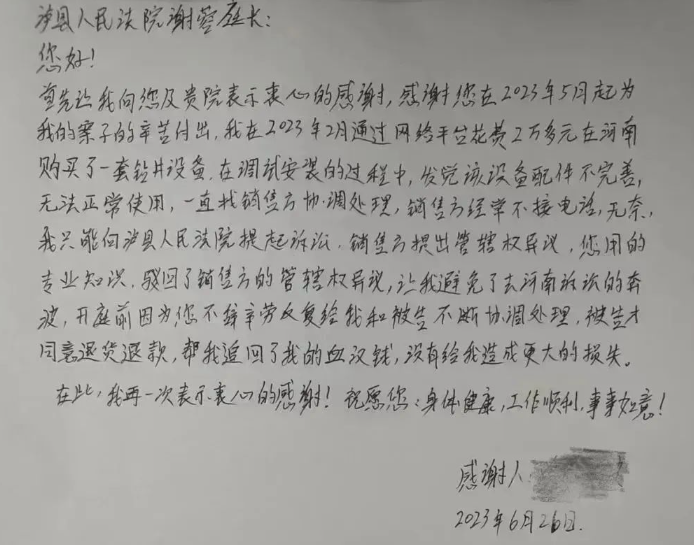 泸县人民法院谢蓉庭长:
您好!
首先让我向您及贵院表示衷心的感谢,感谢您在2023年5月起为
我的案子的辛苦付出,我在2023年2月通过网络平台花费2万多元在河南
购买了一套钻井设备.在调试安装的过程中,发觉该设备配件不完善,
无法正常使用,一直找销售方协调处理,销售方经常不接电话,无奈,
我只能向泸县人民法院提起诉讼.销售方提出管辖权异议,您用的
专业知识.驳回了销售方的管辖权异议,让我避免了去河南诉讼的奔
波,开庭前因为您不辞辛劳反复给我和被告不断协调处理,被告才
同意退货退款,帮我追回了我的血汉钱,没有给我造成更大的损失。
在此,我再一次表示衷心的感谢!祝愿您:身体健康,工作顺利,事事如意!
感谢人
2023年6月26日.